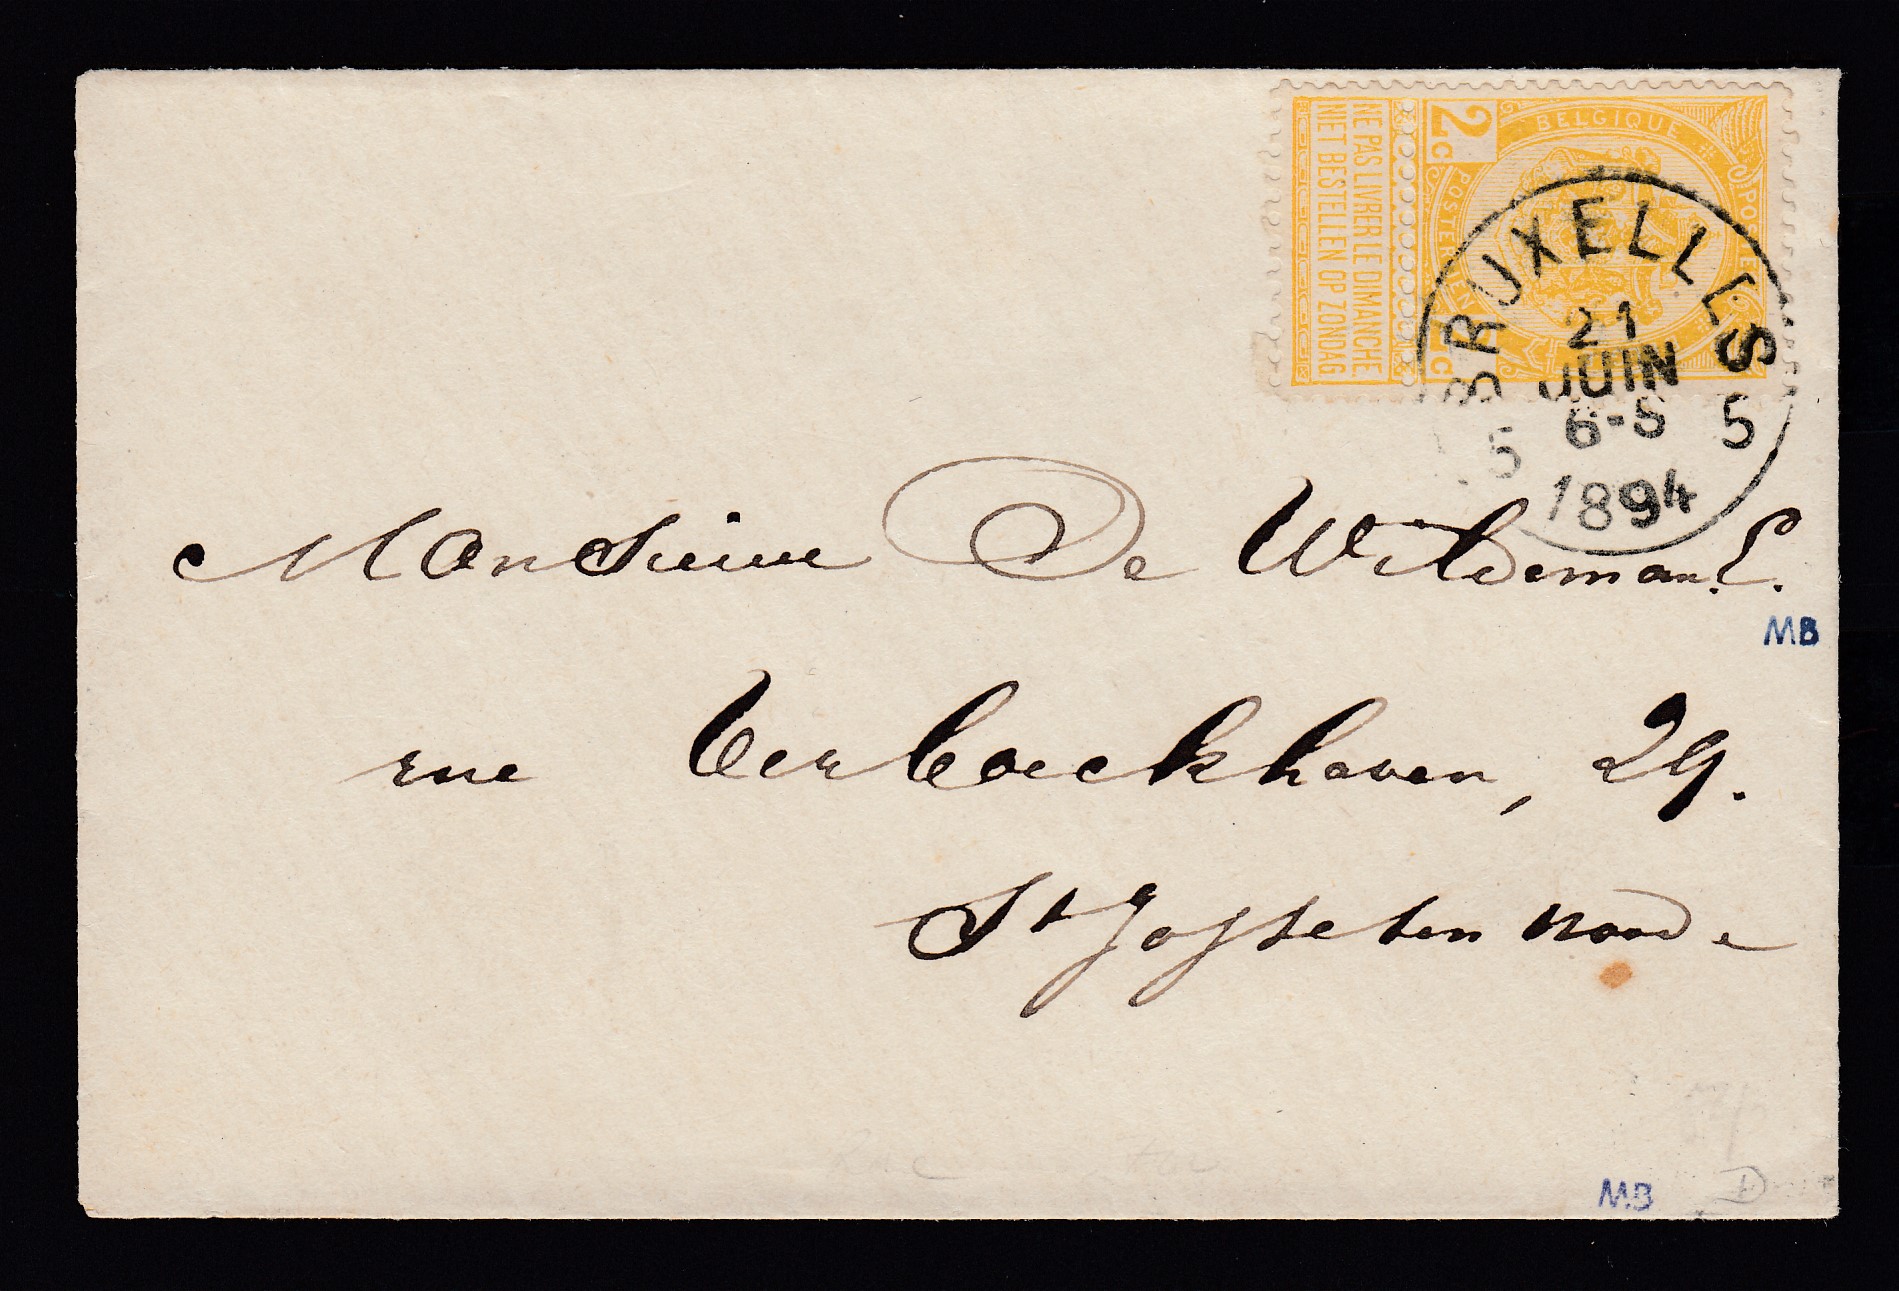 2c
BELGIQUE
POSTES
POSTERIJEN
2c
NE PAS LIVRER LE DIMANCHE
NIET BESTELLEN OP ZONDAG
BRUXELLES
21
JUIN
6-S
5 5
1894
Monsieur De Wildeman. E.
MB
rue Verboeckhaven, 29.
St Josse ten noode
MB